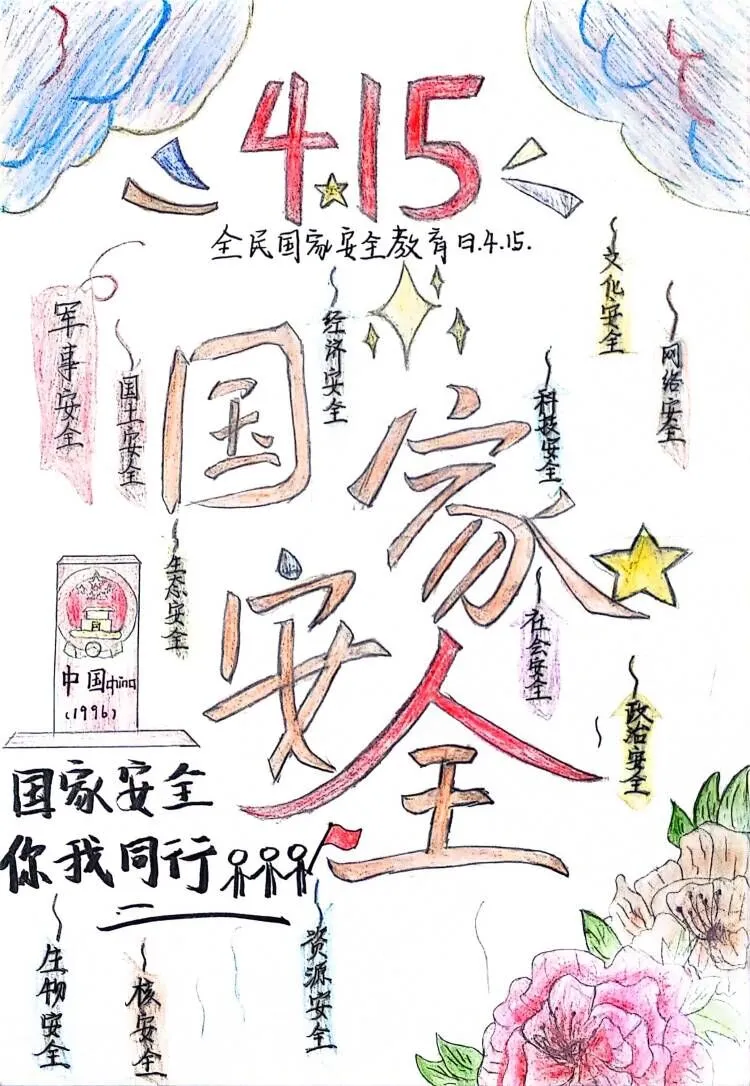 4.15
全民国家安全教育日.4.15.
文化安全
军事安全
国土安全
经济安全
网络安全
科技安全
国家安全
生态安全
社会安全
中国china
(1996)
政治安全
国家安全
你我同行
生物安全
核安全
资源安全